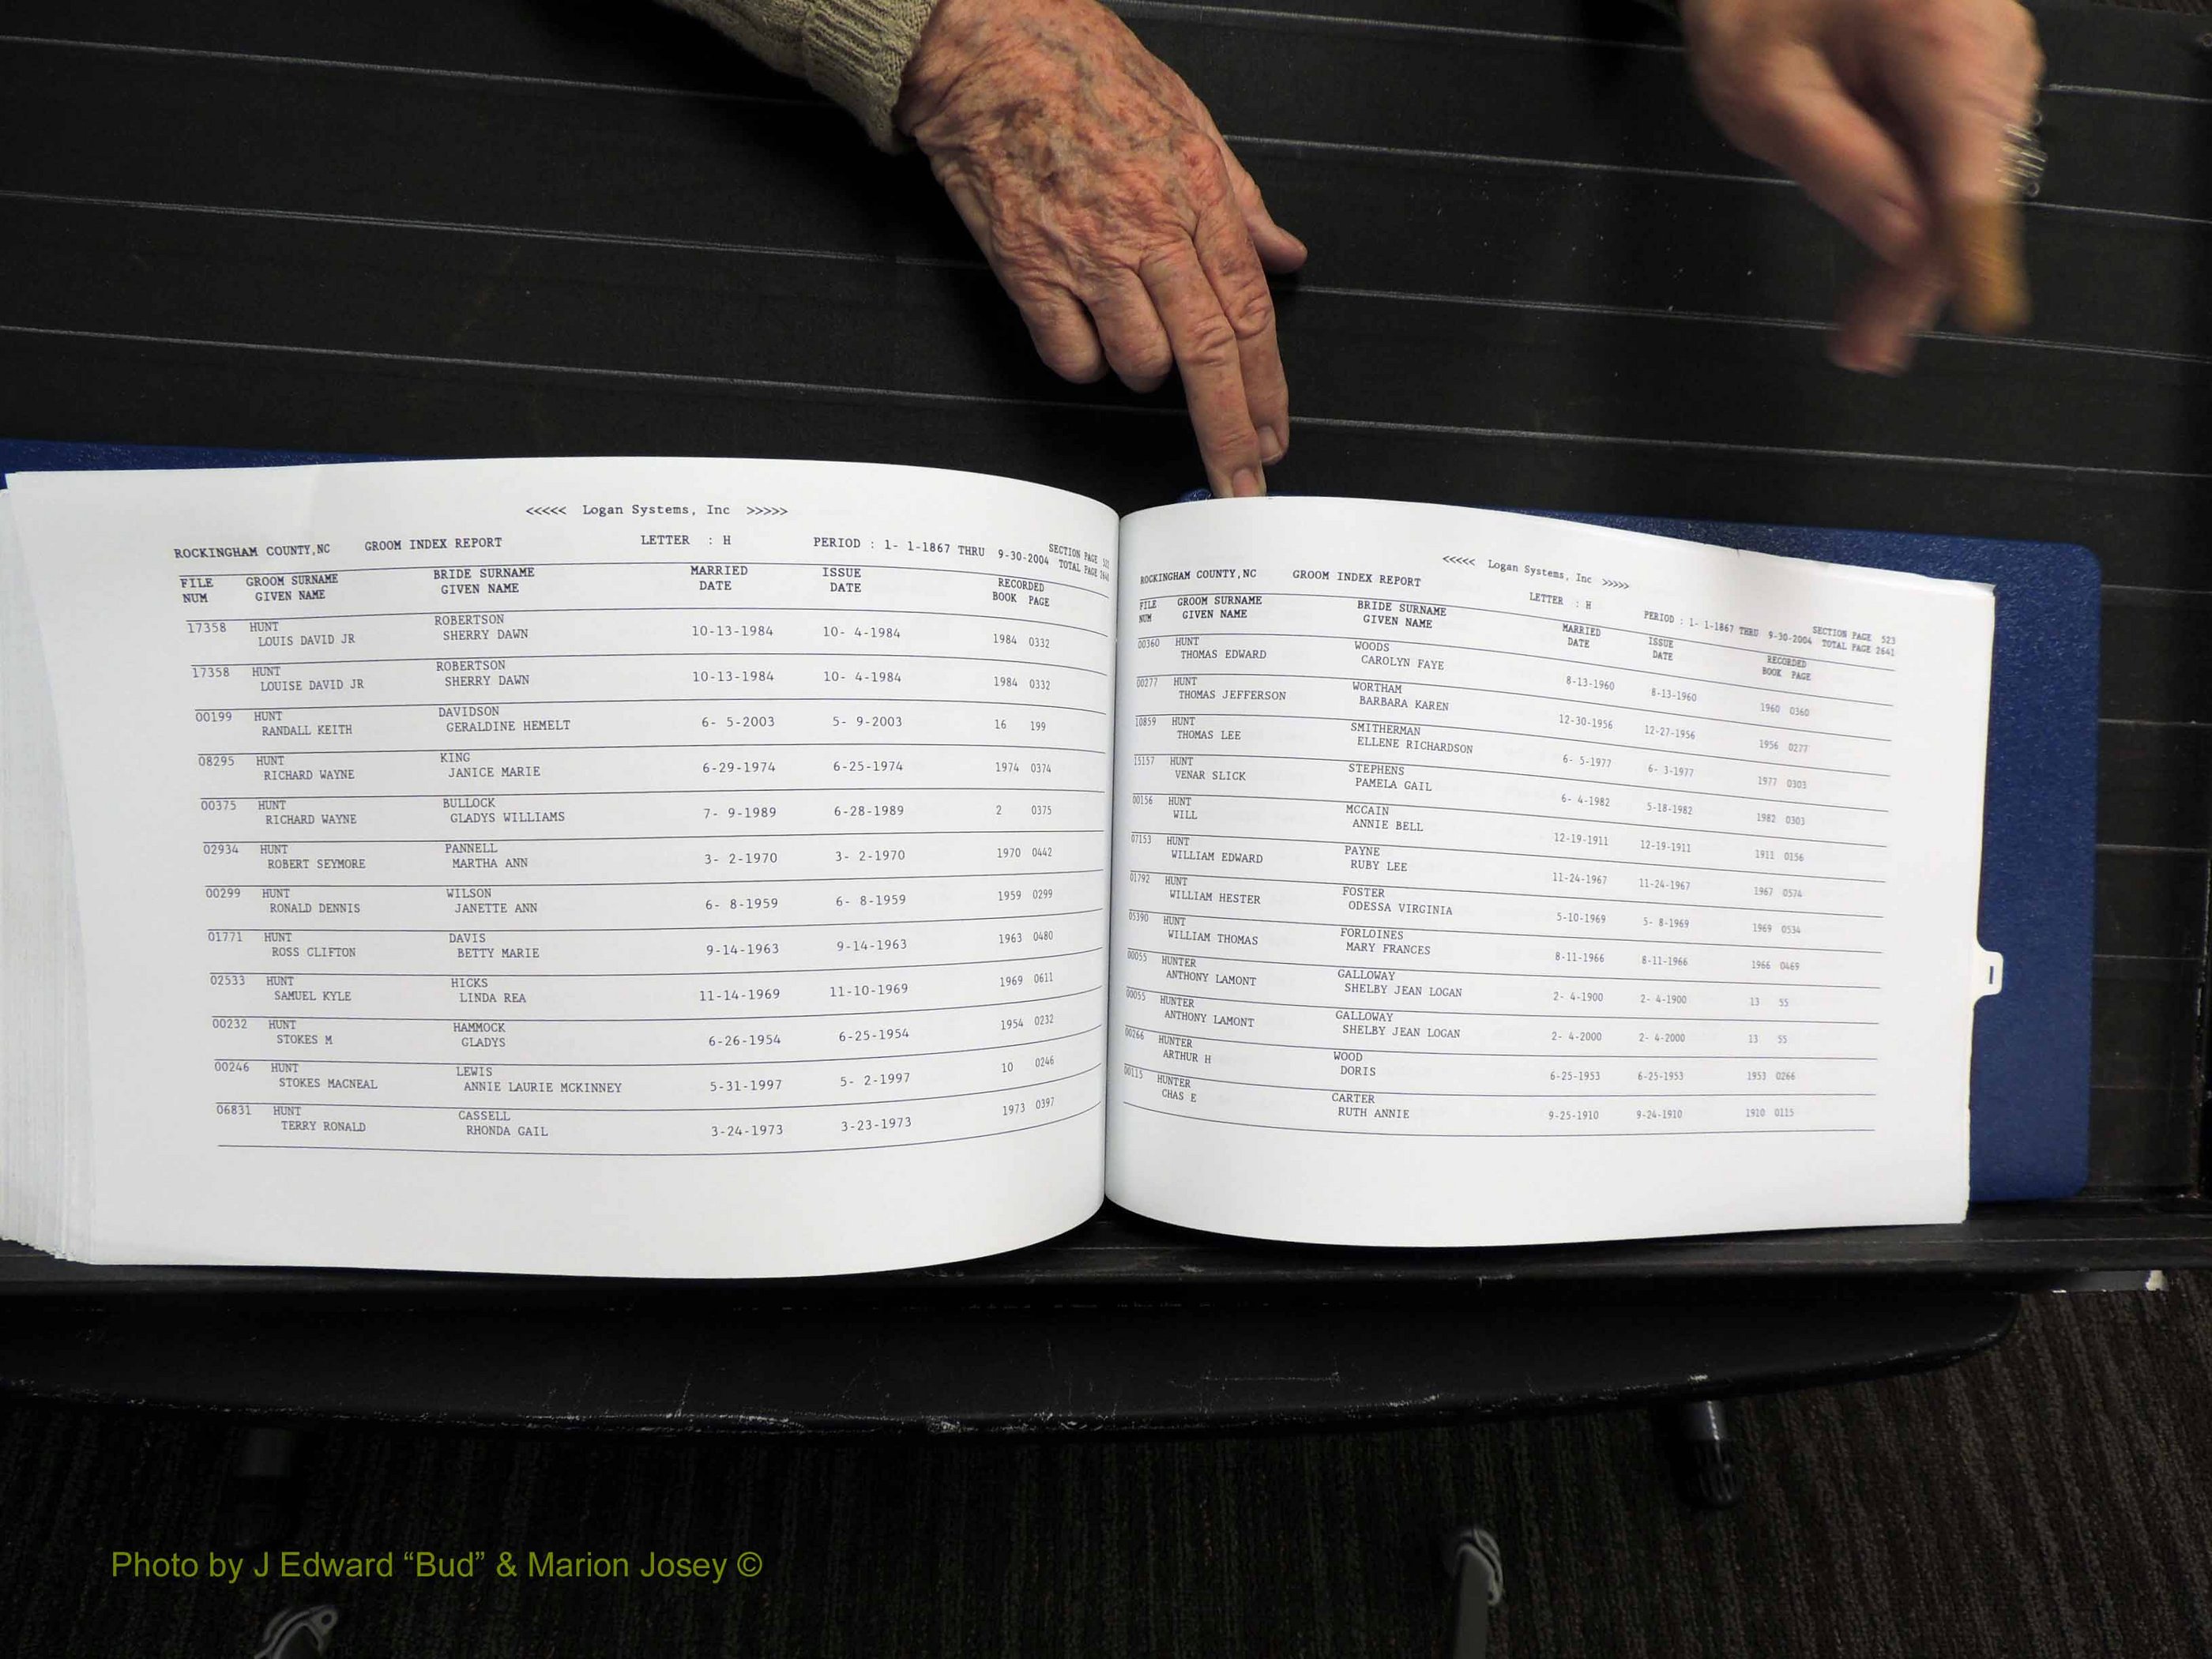 <<<<< Logan Systems, Inc >>>>>
ROCKINGHAM COUNTY,NC GROOM INDEX REPORT LETTER : H PERIOD : 1- 1-1867 THRU 9-30-2004 SECTION PAGE
TOTAL PAGE 2641
FILE GROOM SURNAME BRIDE SURNAME MARRIED ISSUE RECORDED
NUM GIVEN NAME GIVEN NAME DATE DATE BOOK PAGE
17358 HUNT ROBERTSON
LOUIS DAVID JR SHERRY DAWN 10-13-1984 10- 4-1984 1984 0332
17358 HUNT ROBERTSON
LOUISE DAVID JR SHERRY DAWN 10-13-1984 10- 4-1984 1984 0332
00199 HUNT DAVIDSON
RANDALL KEITH GERALDINE HEMELT 6- 5-2003 5- 9-2003 16 199
08295 HUNT KING
RICHARD WAYNE JANICE MARIE 6-29-1974 6-25-1974 1974 0374
00375 HUNT BULLOCK
RICHARD WAYNE GLADYS WILLIAMS 7- 9-1989 6-28-1989 2 0375
02934 HUNT PANNELL
ROBERT SEYMORE MARTHA ANN 3- 2-1970 3- 2-1970 1970 0442
00299 HUNT WILSON
RONALD DENNIS JANETTE ANN 6- 8-1959 6- 8-1959 1959 0299
01771 HUNT DAVIS
ROSS CLIFTON BETTY MARIE 9-14-1963 9-14-1963 1963 0480
02533 HUNT HICKS
SAMUEL KYLE LINDA REA 11-14-1969 11-10-1969 1969 0611
00232 HUNT HAMMOCK
STOKES M GLADYS 6-26-1954 6-25-1954 1954 0232
00246 HUNT LEWIS
STOKES MACNEAL ANNIE LAURIE MCKINNEY 5-31-1997 5- 2-1997 10 0246
06831 HUNT CASSELL
TERRY RONALD RHONDA GAIL 3-24-1973 3-23-1973 1973 0397
<<<<< Logan Systems, Inc >>>>>
ROCKINGHAM COUNTY,NC GROOM INDEX REPORT LETTER : H PERIOD : 1- 1-1867 THRU 9-30-2004 SECTION PAGE 523
TOTAL PAGE 2641
FILE GROOM SURNAME BRIDE SURNAME MARRIED ISSUE RECORDED
NUM GIVEN NAME GIVEN NAME DATE DATE BOOK PAGE
00360 HUNT WOODS
THOMAS EDWARD CAROLYN FAYE 8-13-1960 8-13-1960 1960 0360
00277 HUNT WORTHAM
THOMAS JEFFERSON BARBARA KAREN 12-30-1956 12-27-1956 1956 0277
10859 HUNT SMITHERMAN
THOMAS LEE ELLENE RICHARDSON 6- 5-1977 6- 3-1977 1977 0303
15157 HUNT STEPHENS
VENAR SLICK PAMELA GAIL 6- 4-1982 5-18-1982 1982 0303
00156 HUNT MCCAIN
WILL ANNIE BELL 12-19-1911 12-19-1911 1911 0156
07153 HUNT PAYNE
WILLIAM EDWARD RUBY LEE 11-24-1967 11-24-1967 1967 0574
01792 HUNT FOSTER
WILLIAM HESTER ODESSA VIRGINIA 5-10-1969 5- 8-1969 1969 0534
05390 HUNT FORLOINES
WILLIAM THOMAS MARY FRANCES 8-11-1966 8-11-1966 1966 0469
00055 HUNTER GALLOWAY
ANTHONY LAMONT SHELBY JEAN LOGAN 2- 4-1900 2- 4-1900 13 55
00055 HUNTER GALLOWAY
ANTHONY LAMONT SHELBY JEAN LOGAN 2- 4-2000 2- 4-2000 13 55
00266 HUNTER WOOD
ARTHUR H DORIS 6-25-1953 6-25-1953 1953 0266
00115 HUNTER CARTER
CHAS E RUTH ANNIE 9-25-1910 9-24-1910 1910 0115
I
Photo by J Edward “Bud” & Marion Josey ©